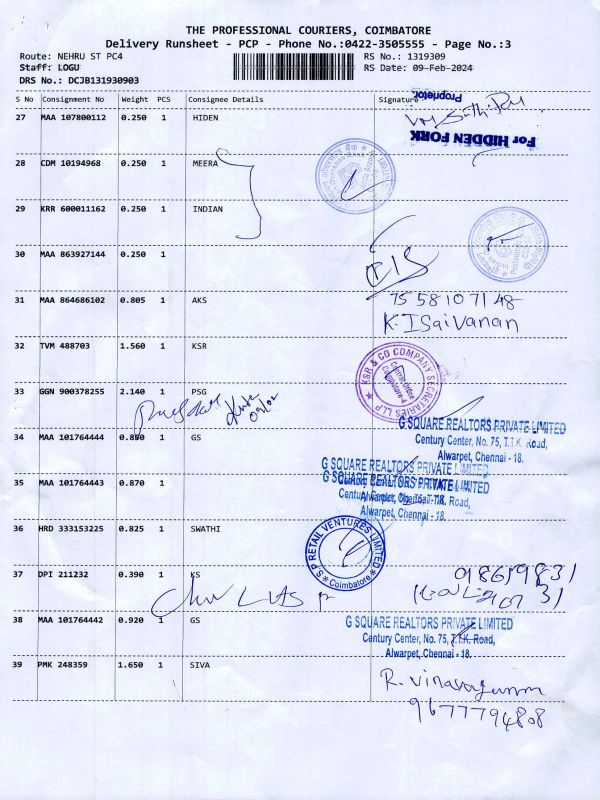 THE PROFESSIONAL COURIERS, COIMBATORE
Delivery Runsheet - PCP - Phone No.:0422-3505555 - Page No.:3
Route: NEHRU ST PC4 RS No.: 1319309
Staff: LOGU RS Date: 09-Feb-2024
DRS No.: DCJB131930903
S No Consignment No Weight PCS Consignee Details Signature
Proprietor
27 MAA 107800112 0.250 1 HIDEN
For HIDDEN FORK
28 CDM 10194968 0.250 1 MEERA
29 KRR 600011162 0.250 1 INDIAN
30 MAA 863927144 0.250 1
31 MAA 864686102 0.805 1 AKS
7558107148
K. ISaivanan
32 TVM 488703 1.560 1 KSR
KSR & CO COMPANY SECRETARIES LLP
Coimbatore-4
33 GGN 900378255 2.140 1 PSG
09/02
G SQUARE REALTORS PRIVATE LIMITED
Century Center, No. 75, T.T.K. Road,
Alwarpet, Chennai - 18.
34 MAA 101764444 0.850 1 GS
G SQUARE REALTORS PRIVATE LIMITED
G SQUARE REALTORS PRIVATE LIMITED
35 MAA 101764443 0.870 1
Alwarpet, Chennai - 18.
36 HRD 333153225 0.825 1 SWATHI
S P RETAIL VENTURES LIMITED
Coimbatore
37 DPI 211232 0.390 1 KS
38 MAA 101764442 0.920 1 GS
G SQUARE REALTORS PRIVATE LIMITED
Century Center, No. 75, T.T.K. Road,
Alwarpet, Chennai - 18.
39 PMK 248359 1.650 1 SIVA
9677794808